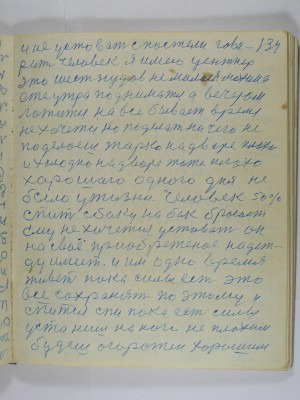 и не устоват спостели гово- 134
рит человек я имею центнер
это шест пудов не малая
ета утра поднимат а вечером
ложит на все бывает время
не хочети но поднят ничего не
поделоеш жарко на дворе плохо
и холодно на дворе тоже плохо
хорошаго одного дня не
было ужизни человек 50%
спит сбоку на бок бросает
ему не хочется устават он
на своё приобретеное надеж-
ду имеет. и им одно время
живет пока силы ест это
все сохранят по этому и
спится спи пока ест силы
уста ниш на ноги не плохим
будеш огорожен хорошим